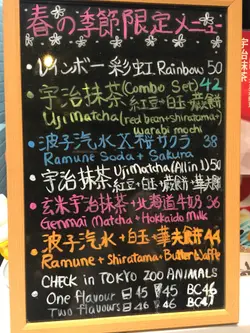 春の季節限定メニュー
レインボー 彩虹 Rainbow 50
宇治抹茶(Combo Set) 42
紅豆+白玉+蕨餅
Uji Matcha (red bean+shiratama+
warabi mochi
波子汽水 X 桜サクラ 38
Ramune Soda + Sakura
宇治抹茶 Uji Matcha (All in 1) 50
紅豆+白玉+蕨餅+華夫餅
玄米宇治抹茶+北海道牛奶 36
Genmai Matcha + Hokkaido Milk
波子汽水+白玉+華夫餅 44
Ramune + Shiratama + Butter Waffle
CHECK in TOKYO ZOO ANIMALS
One flavour 45 $45 BC46
Two flavours 46 $46 BC47
宇治抹茶